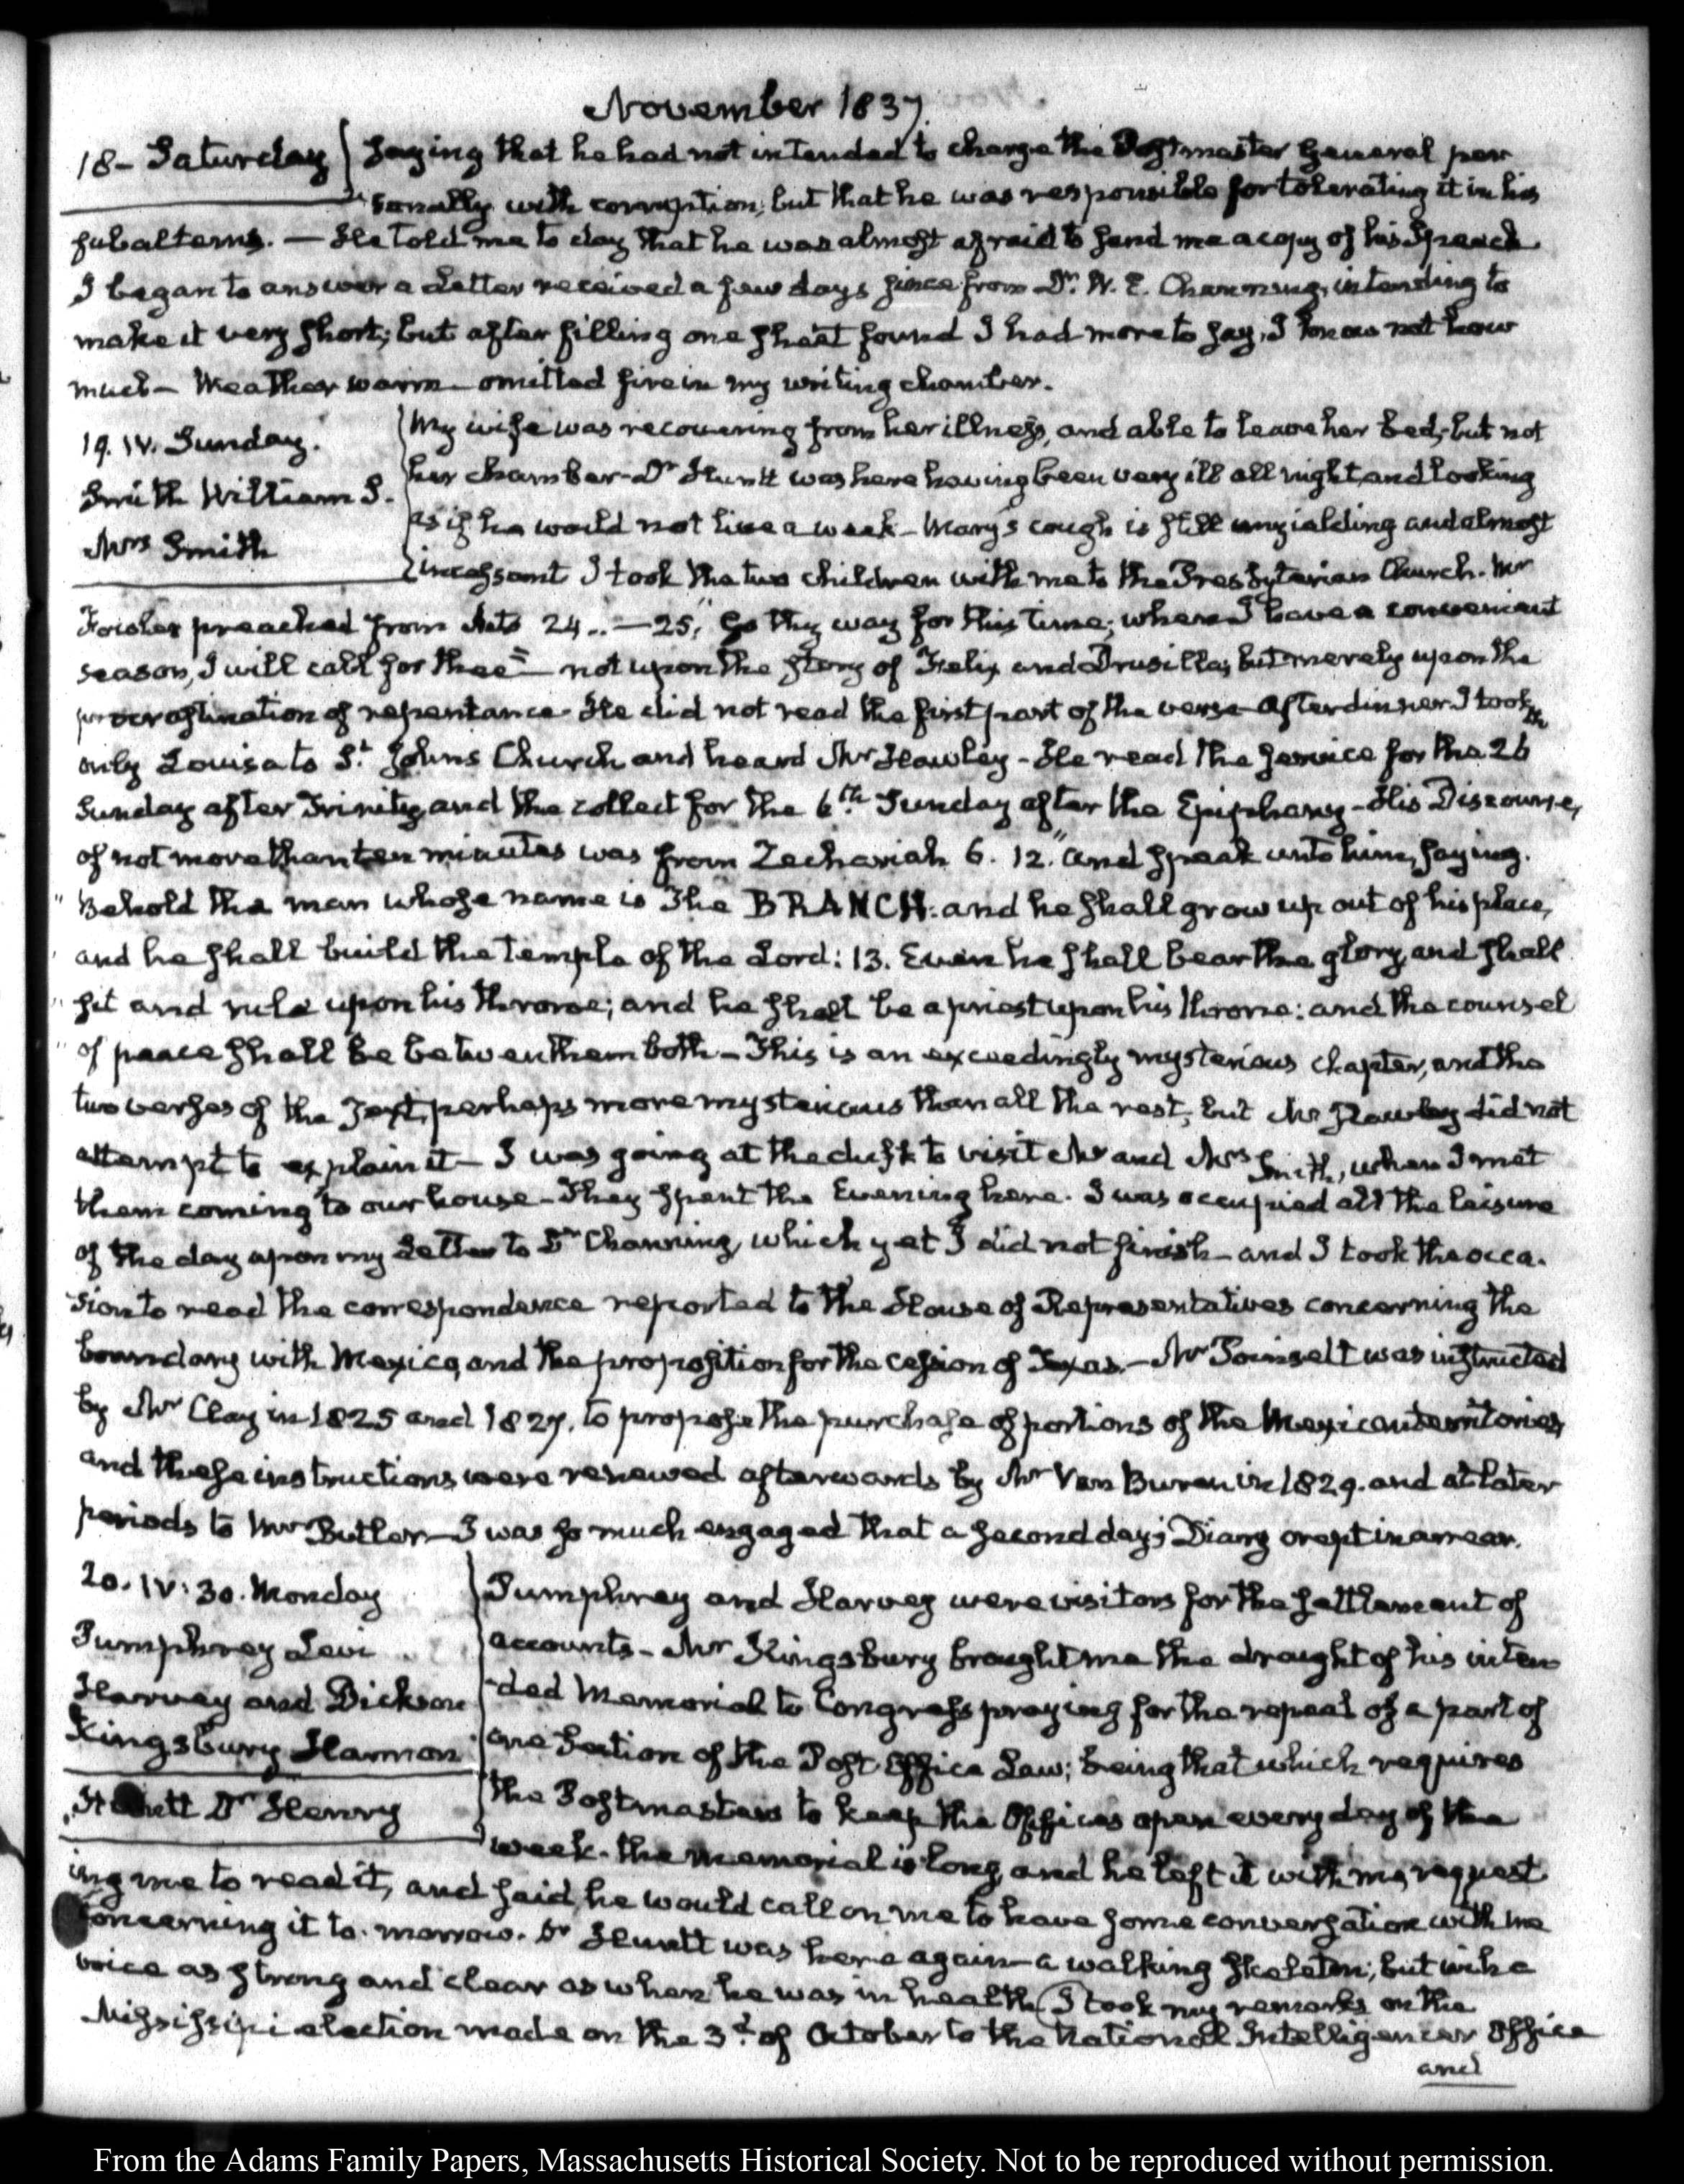 November 1837.
18 – Saturday
saying that he had not intended to charge the Postmaster General per
sonally with corruption; but that he was responsible for tolerating it in his
subalterns. — He told me to day that he was almost afraid to send me a copy of his Speech
I began to answer a Letter received a few days since from Dr. W. E. Channing, intending to
make it very short; but after filling one sheet found I had more to say, I know not how
much – Weather warm – omitted fire in my writing chamber.
19. IV. Sunday.
Smith William S.
Mrs Smith
My wife was recovering from her illness, and able to leave her bed, but not
her chamber – Dr Huntt was here having been very ill all night, and looking
as if he would not live a week – Mary's cough is still unyielding and almost
incessant I took the two children with me to the Presbyterian Church. Mr
Fowler preached from Acts 24..—25, "Go thy way for this time; when I have a convenient
season, I will call for thee" – not upon the story of Felix and Drusilla; but merely upon the
procrastination of repentance – He did not read the first part of the verse – After dinner I took
only Louisa to St. Johns Church and heard Mr Hawley – He read the service for the 26th
Sunday after Trinity, and the collect for the 6th. Sunday after the Epiphany – His Discourse,
of not more than ten minutes was from Zechariah 6. 12. "And speak unto him, saying.
" Behold the man whose name is The BRANCH: and he shall grow up out of his place,
" and he shall build the temple of the Lord: 13. Even he shall bear the glory, and shall
" sit and rule upon his throne; and he shall be a priest upon his throne: and the counsel
" of peace shall be between them both – This is an exceedingly mysterious chapter, and the
two verses of the Text, perhaps more mysterious than all the rest, but Mr Hawley did not
attempt to explain it – I was going at the dusk to visit Mr and Mrs Smith, when I met
them coming to our house – They spent the Evening here. I was occupied all the leisure
of the day upon my Letter to Dr Channing, which yet I did not finish – and I took the occa-
sion to read the correspondence reported to the House of Representatives concerning the
boundary with Mexico, and the proposition for the cession of Texas. – Mr Poinsett was instructed
by Mr Clay in 1825 and 1827. to propose the purchase of portions of the Mexican territories,
and these instructions were renewed afterwards by Mr Van Buren in 1829. and at later
periods to Mr Butler – I was so much engaged that a second day's Diary crept in arrear.
20. IV: 30. Monday
Pumphrey Levi
Harvey and Dickson
Kingsbury Harmon
Huntt Dr Henry
Pumphrey and Harvey were visitors for the settlement of
accounts – Mr Kingsbury brought me the draught of his inten
ded Memorial to Congress praying for the repeal of a part of
one Section of the Post Office Law; being that which requires
the Postmasters to keep the Offices open every day of the
week – the memorial is long, and he left it with me, request
ing me to read it, and said, he would call on me to have some conversation with me
concerning it to-morrow. Dr Huntt was here again – a walking skeleton; but with a
voice as strong and clear as when he was in health (I took my remarks on the
Mississippi election made on the 3d. of October to the National Intelligencer Office
and
From the Adams Family Papers, Massachusetts Historical Society. Not to be reproduced without permission.